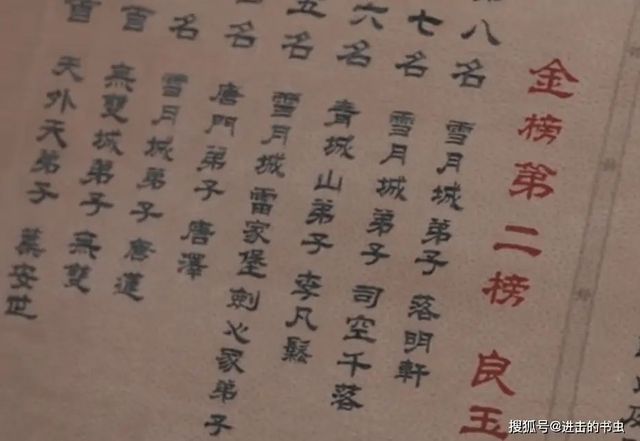 金榜第二榜 良玉
八名 雪月城弟子 落明軒
七名 雪月城弟子 司空千落
六名 青城山弟子 李凡鬆
五名 雪月城雷家堡劍心冢弟子
名 唐門弟子 唐澤
名 雪月城弟子 唐蓮
首 無雙城弟子 無雙
首 天外天弟子 葉安世
搜狐号@进击的书虫